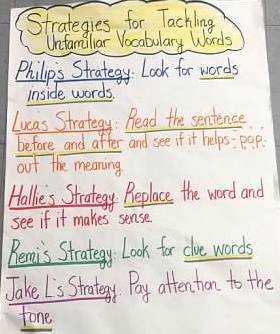 Strategies for Tackling
Unfamiliar Vocabulary Words
Philip's Strategy: Look for words
inside words.
Luca's Strategy: Read the sentence
before and after and see if it helps
out the meaning.
Hallie's Strategy: Replace the word and
see if it makes sense.
Remi's Strategy: Look for clue words
Jake L's Strategy: Pay attention to the
tone.